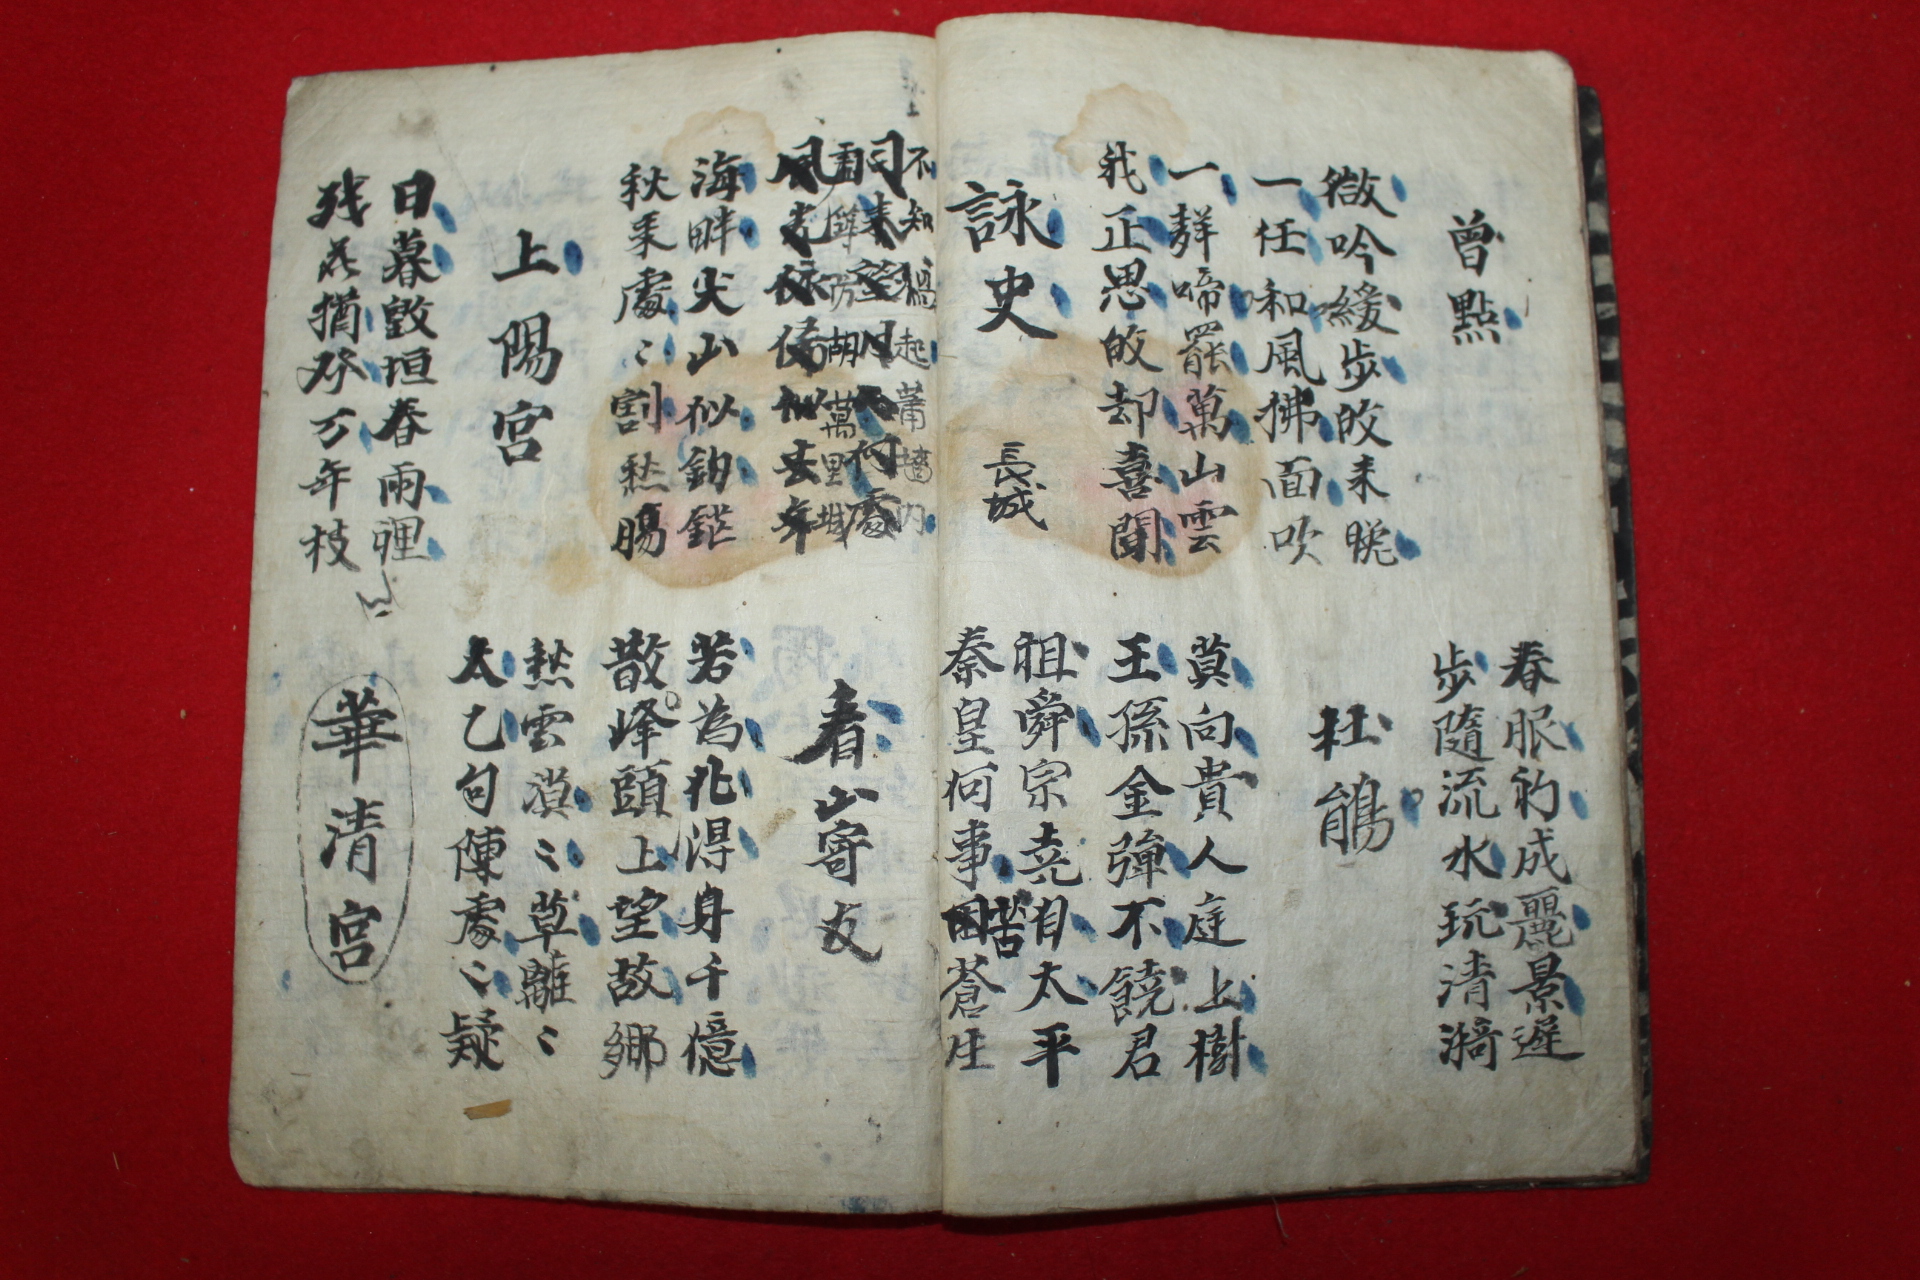 曾點
春服初成麗景遲
步隨流水玩清漪
微吟緩步皈来晩
一任和風拂面吹
杜鵑
一聲啼罷萬山雲
我正思皈却喜聞
莫向貴人庭上樹
王孫金彈不饒君
詠史
長城
祖舜宗堯自太平
秦皇何事苦蒼生
不知禍起蕭墻內
同来望月人何處
防胡萬里城
風光依俙似去年
看山寄友
海畔尖山似釰鋩
秋来處〻割愁腸
若為化得身千億
散峰頭上望故鄉
上陽宮
愁雲漠〻草離〻
太乙句陳處〻疑
日暮毀垣春雨裡
殘花猶發万年枝
華清宮